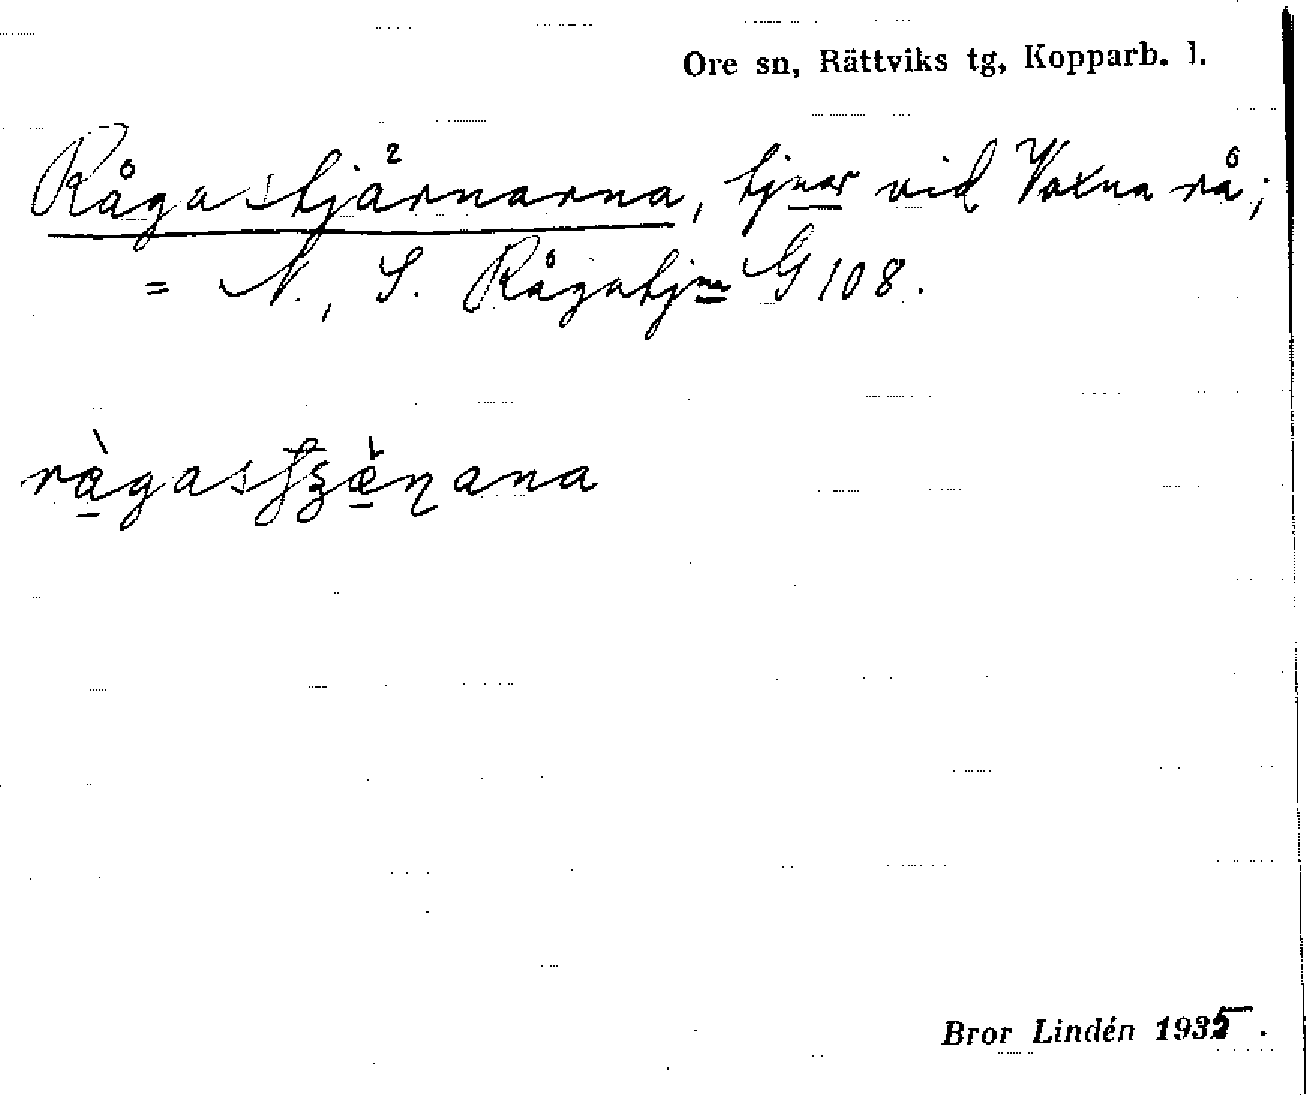 Ore sn, Rättviks tg, Kopparb. l.
Rågastjärnarna, tjnar vid Voxna rå;
= N., S. Rågatjne G 108.
Bror Lindén 1935.